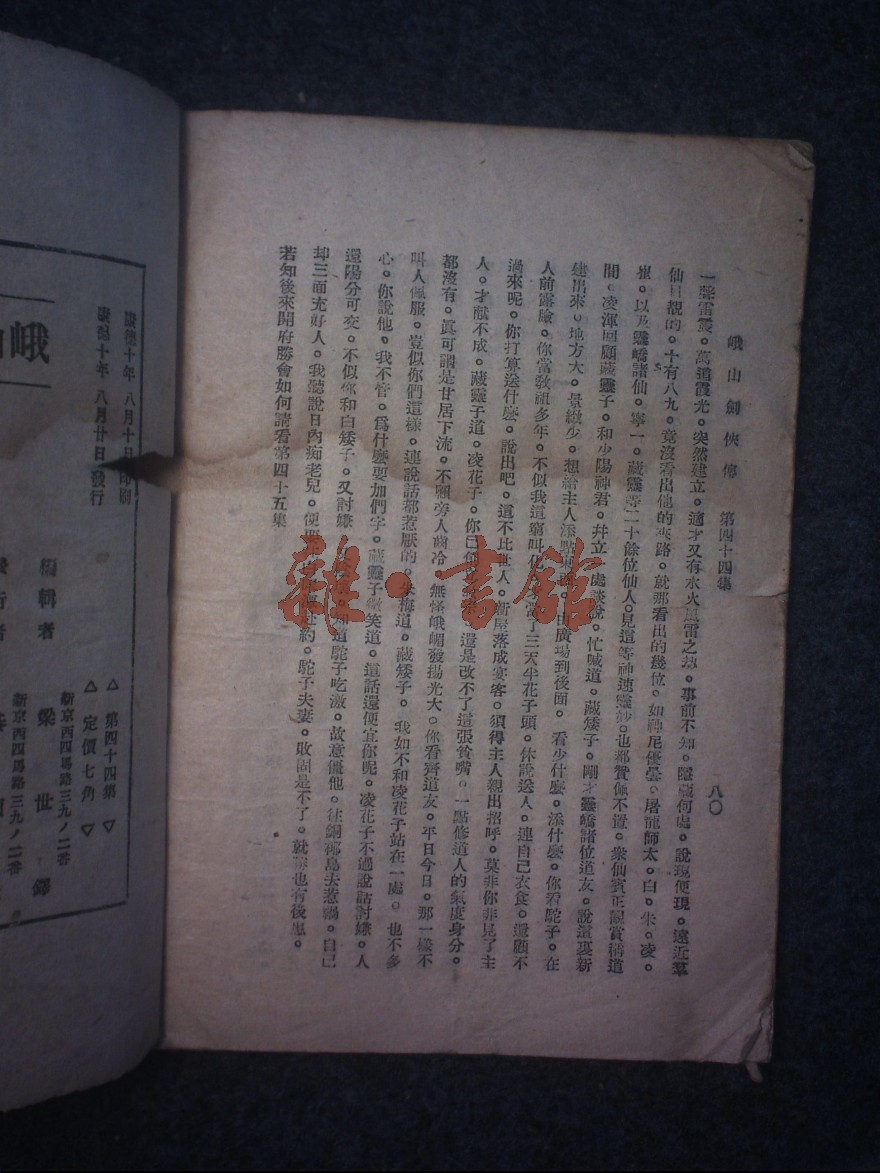 峨山劍俠傳　第四十四集
八〇
一聲雷震。萬道霞光。突然建立。適才又有水火風雷之聲。事前不知。隱藏何處。說現便現。遠近羣
仙目覩的。十有八九。竟沒看出他的來路。就那看出的幾位。如神尼優曇。屠龍師太。白。朱。凌。
崔。以及靈嶠諸仙。寧一。藏靈等二十餘位仙人。見這等神速靈妙。也都贊佩不置。衆仙賓正讚賞稱道
間。凌渾回顧藏靈子。和少陽神君。幷立一處談說。忙喊道。藏矮子。剛才靈嶠諸位道友。說這裏新
建出來。地方大。景緻少。想給主人添點。由廣場到後面。看少什麼。添什麼。你看駝子。在
人前露臉。你當教祖多年。不似我這窮叫化。當了三天半花子頭。休說送人。連自己衣食。還顧不
過來呢。你打算送什麼。說出吧。這不比世人。新屋落成宴客。須得主人親出招呼。莫非你非見了主
人。才獻不成。藏靈子道。凌花子。你已創。還是改不了這張貧嘴。一點修道人的氣度身分。
都沒有。眞可謂是甘居下流。不顧旁人齒冷。無怪峨嵋發揚光大。你看齊道友。平日今日。那一樣不
叫人佩服。豈似你們這樣。連說話都惹厭的。朱梅道。藏矮子。我如不和凌花子站在一處。也不多
心。你說他。我不管。爲什麼要加們字。藏靈子微笑道。這話還便宜你呢。凌花子不過說話討嫌。人
還陽分可交。不似你和白矮子。又討嫌。知道駝子吃激。故意僵他。往銅椰島去惹禍。自己
却三面充好人。我聽說日內痴老兒。便赴約。駝子夫妻。敗固是不了。就勝也有後患。
若知後來開府勝會如何請看第四十五集
峨
康德十年八月十日印刷
康德十年八月廿日發行
編輯者　梁世鐸
新京西四馬路三九ノ二番
發行者
新京西四馬路三九ノ二番
△第四十四集▽
△定價七角▽
雜·書館